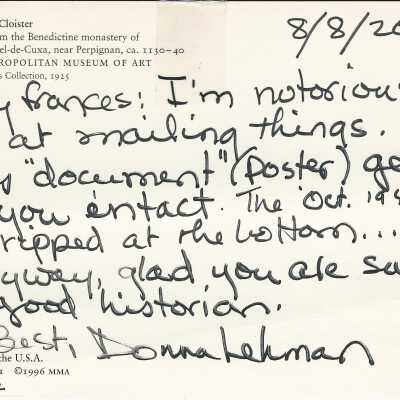 Cloister
m the Benedictine monastery of
el-de-Cuxa, near Perpignan, ca. 1130–40
ROPOLITAN MUSEUM OF ART
s Collection, 1925
8/8/20
y frances: I'm notoriou
at mailing things.
"document" (poster) ge
you entact. The Oct. 198
ripped at the bottom...
yway, glad you are sa
good historian.
Best, Donna Lehman
the U.S.A.
©1996 MMA